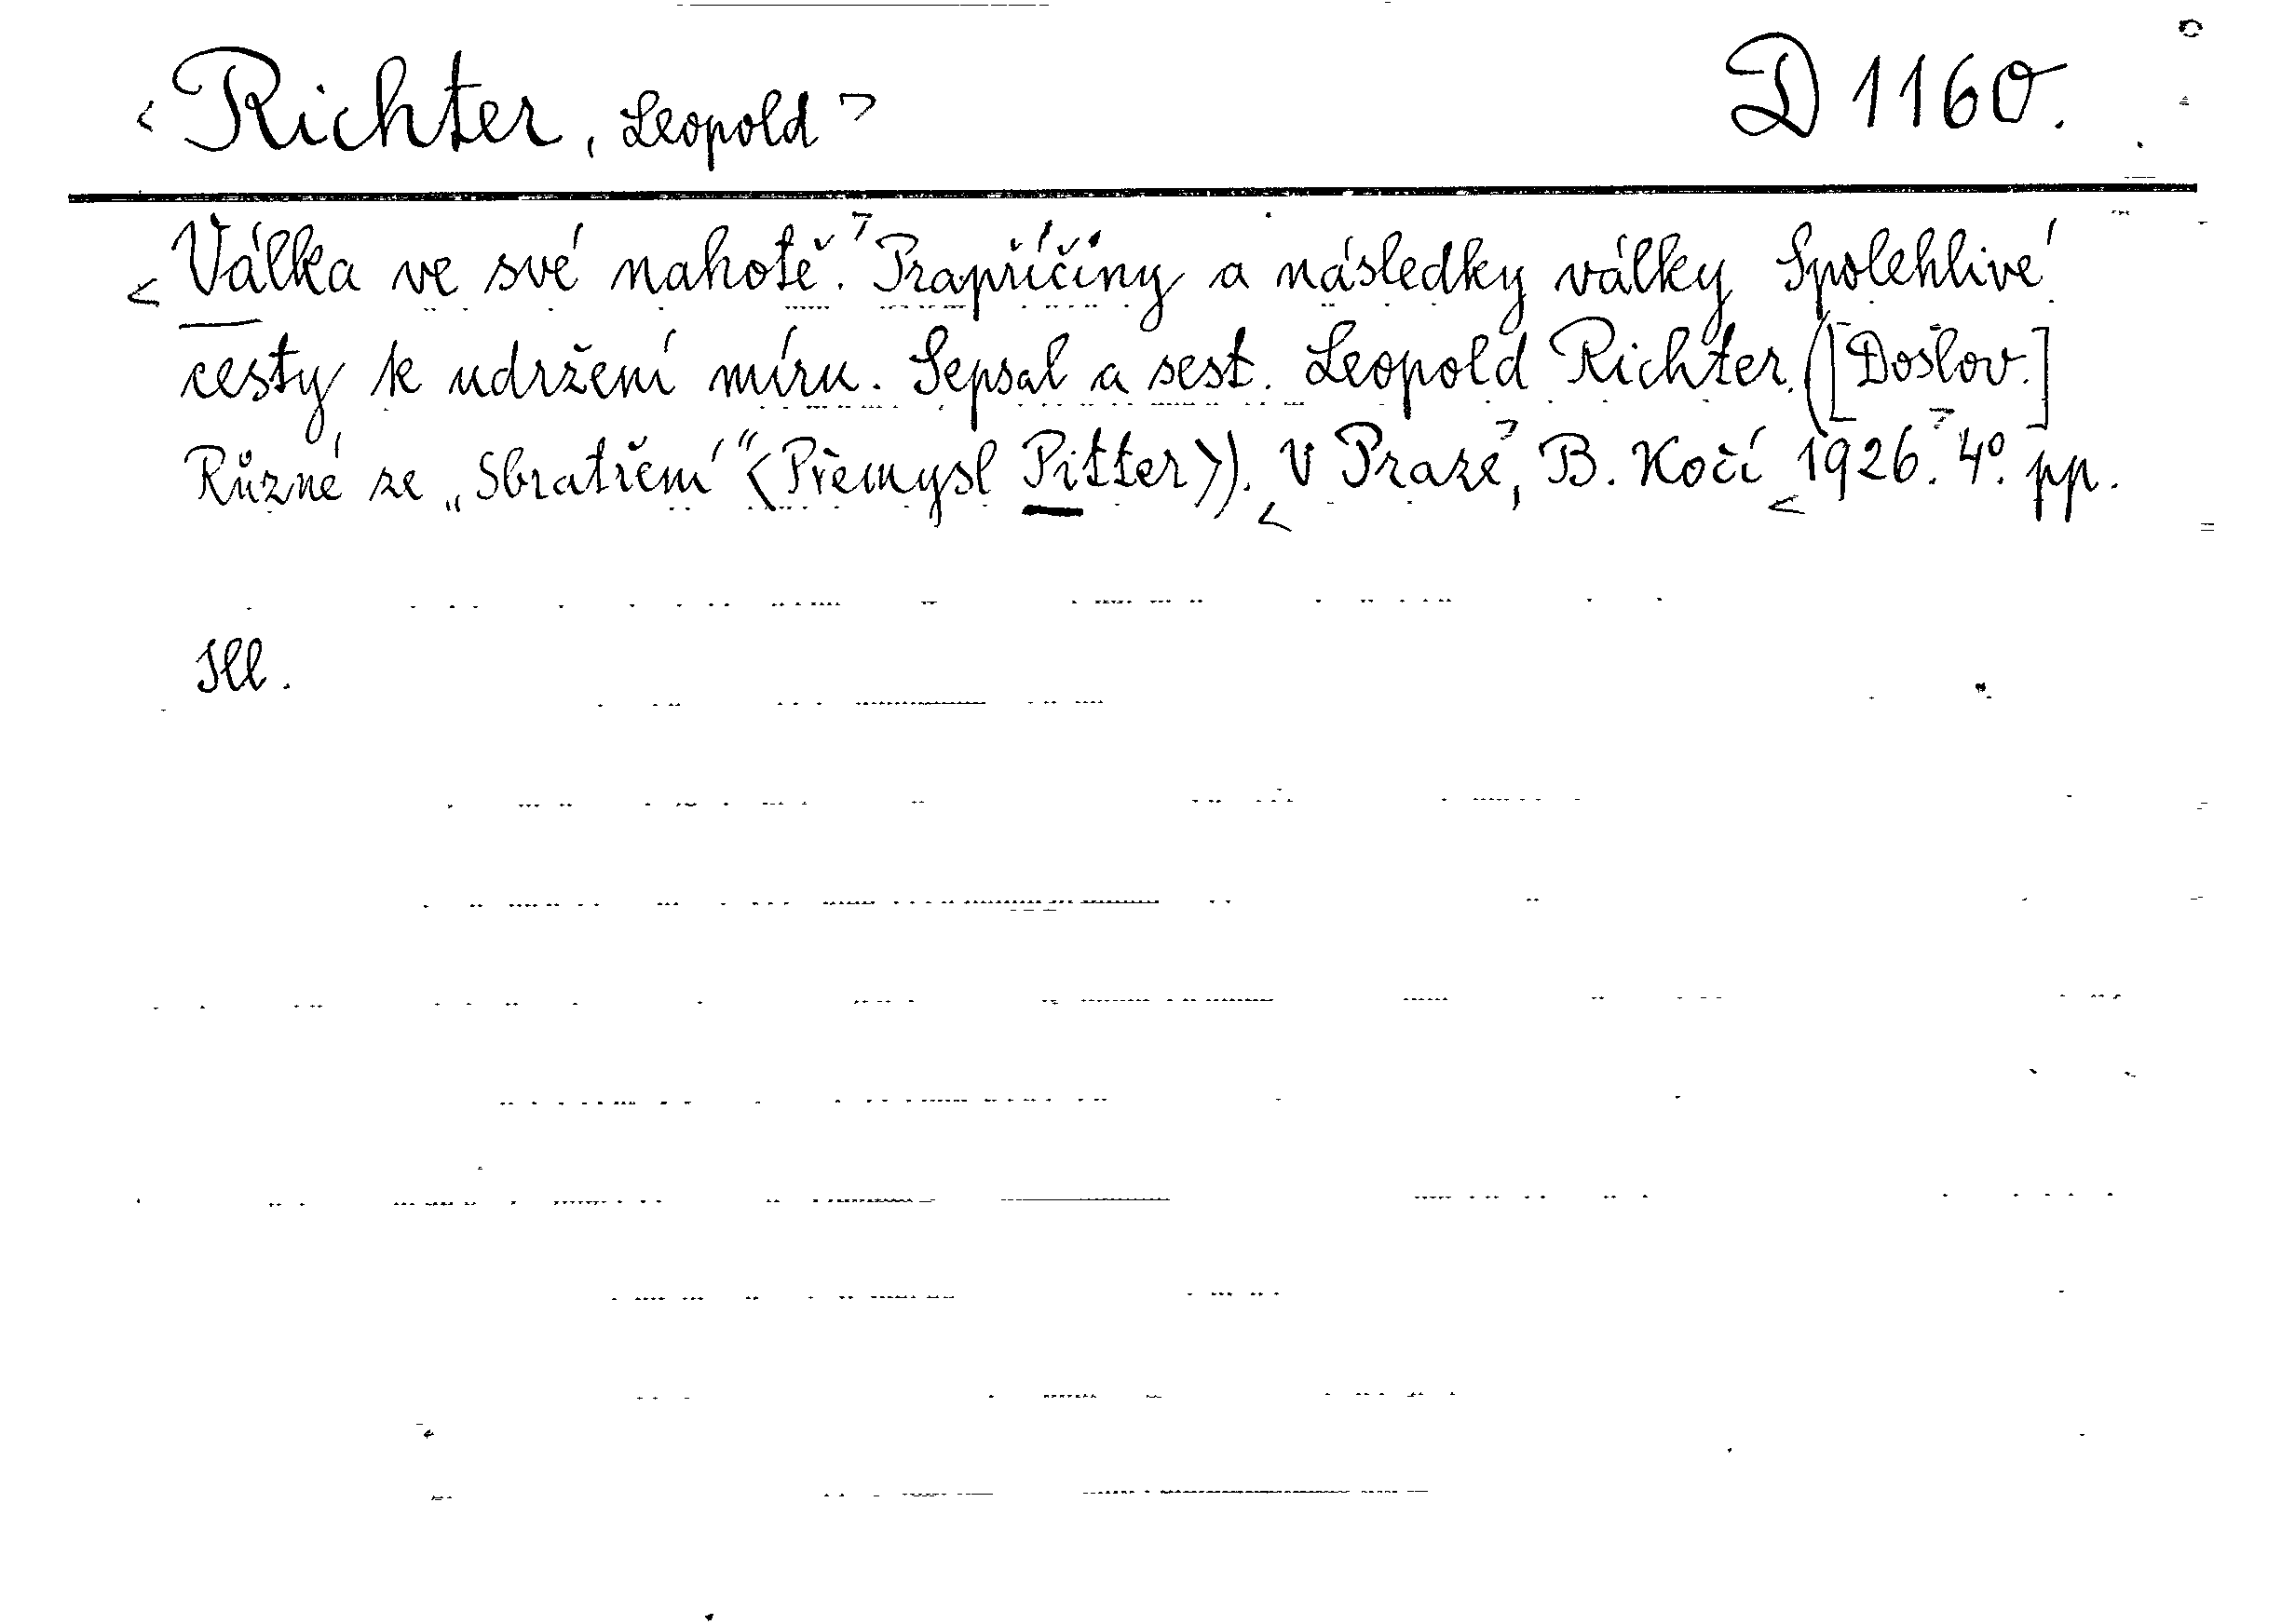 <Richter, Leopold> D 1160.
<Válka ve své nahotě.> Prapříčiny a následky války Spolehlivé
cesty k udržení míru. Sepsal a sest. Leopold Richter. ([Doslov.]
Různé ze „Sbratření" <Přemysl Pitter>). <V Praze>, B. Kočí <1926.> 4°. pp.
Ill.